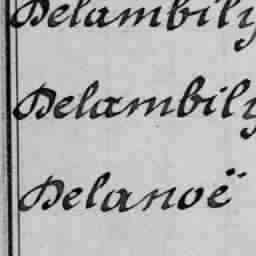 Delambily
Delambily
Delanoë